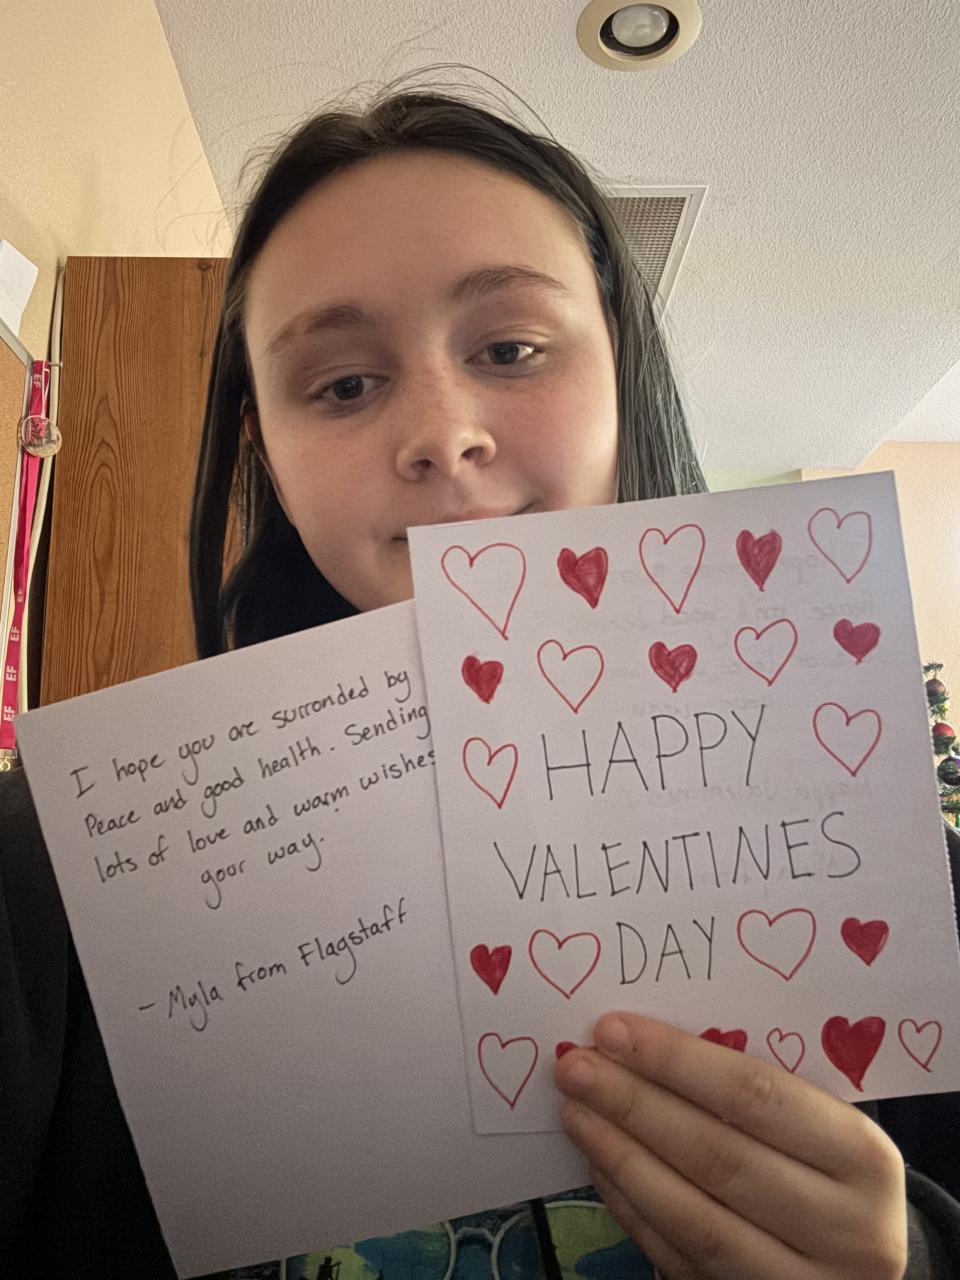 I hope you are surronded by
Peace and good health. Sending
lots of love and warm wishes
your way.
- Myla from Flagstaff
HAPPY
VALENTINES
DAY
EF
EF
EF
EF